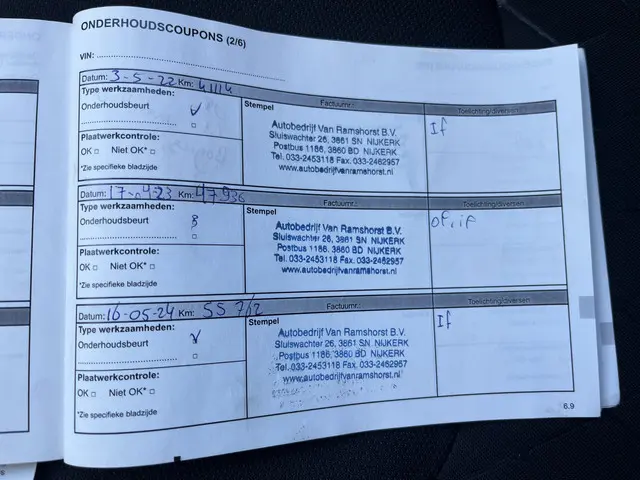 ONDERHOUDSCOUPONS (2/6)
VIN:
Datum: 3-5-22 Km: 41114
Type werkzaamheden:
Onderhoudsbeurt
Plaatwerkcontrole:
OK □ Niet OK* □
*Zie specifieke bladzijde
Factuurnr.:
Stempel
Autobedrijf Van Ramshorst B.V.
Sluiswachter 26, 3861 SN NIJKERK
Postbus 1186, 3860 BD NIJKERK
Tel. 033-2453118 Fax. 033-2462957
www.autobedrijfvanramshorst.nl
Toelichting/diversen:
If
Datum: 17-04-23 Km: 47936
Type werkzaamheden:
Onderhoudsbeurt
Plaatwerkcontrole:
OK □ Niet OK* □
*Zie specifieke bladzijde
Factuurnr.:
Stempel
Autobedrijf Van Ramshorst B.V.
Sluiswachter 26, 3861 SN NIJKERK
Postbus 1186, 3860 BD NIJKERK
Tel. 033-2453118 Fax. 033-2462957
www.autobedrijfvanramshorst.nl
Toelichting/diversen:
of, if
Datum: 16-05-24 Km: 55762
Type werkzaamheden:
Onderhoudsbeurt
Plaatwerkcontrole:
OK □ Niet OK* □
*Zie specifieke bladzijde
Factuurnr.:
Stempel
Autobedrijf Van Ramshorst B.V.
Sluiswachter 26, 3861 SN NIJKERK
Postbus 1186, 3860 BD NIJKERK
Tel. 033-2453118 Fax. 033-2462957
www.autobedrijfvanramshorst.nl
Toelichting/diversen:
If
6.9